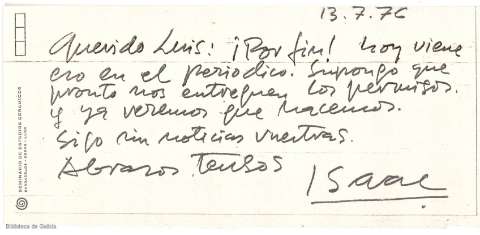 13.7.76
Querido Luis: ¡Por fin! hoy viene
eso en el periodico. Supongo que
pronto nos entreguen los permisos.
y ya veremos que hacemos.
Sigo sin noticias vuestras.
Abrazos Tensos
Isaac
SEMINARIO DE ESTUDIOS CERAMICOS
Biblioteca de Galicia